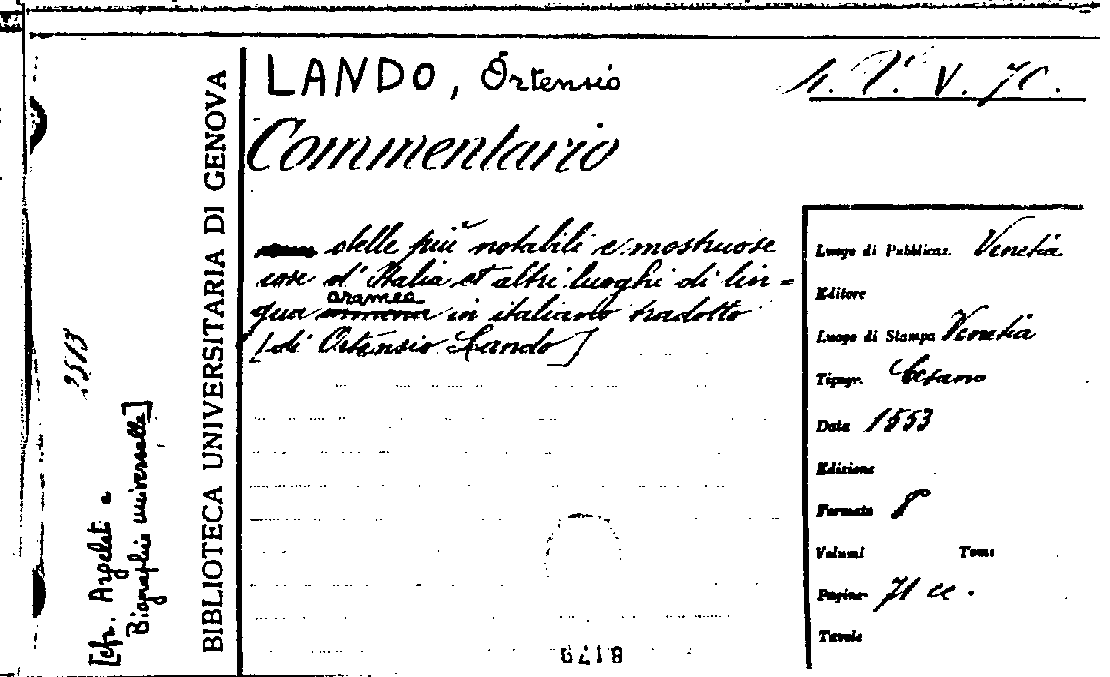 LANDO, Ortensio
Commentario
delle più notabili e mostruose
cose d'Italia et altri luoghi di lin=
gua aramea in italiano tradotto
[di Ortensio Lando]
V. 70.
Luogo di Pubblicaz. Venetia
Editore
Luogo di Stampa Venetia
Tipogr. Cesano
Data 1553
Edizione
Formato 8
Volumi Tomi
Pagine 71 cc.
Tavole
BIBLIOTECA UNIVERSITARIA DI GENOVA
[cfr. Argelati e
Biographie universelle]